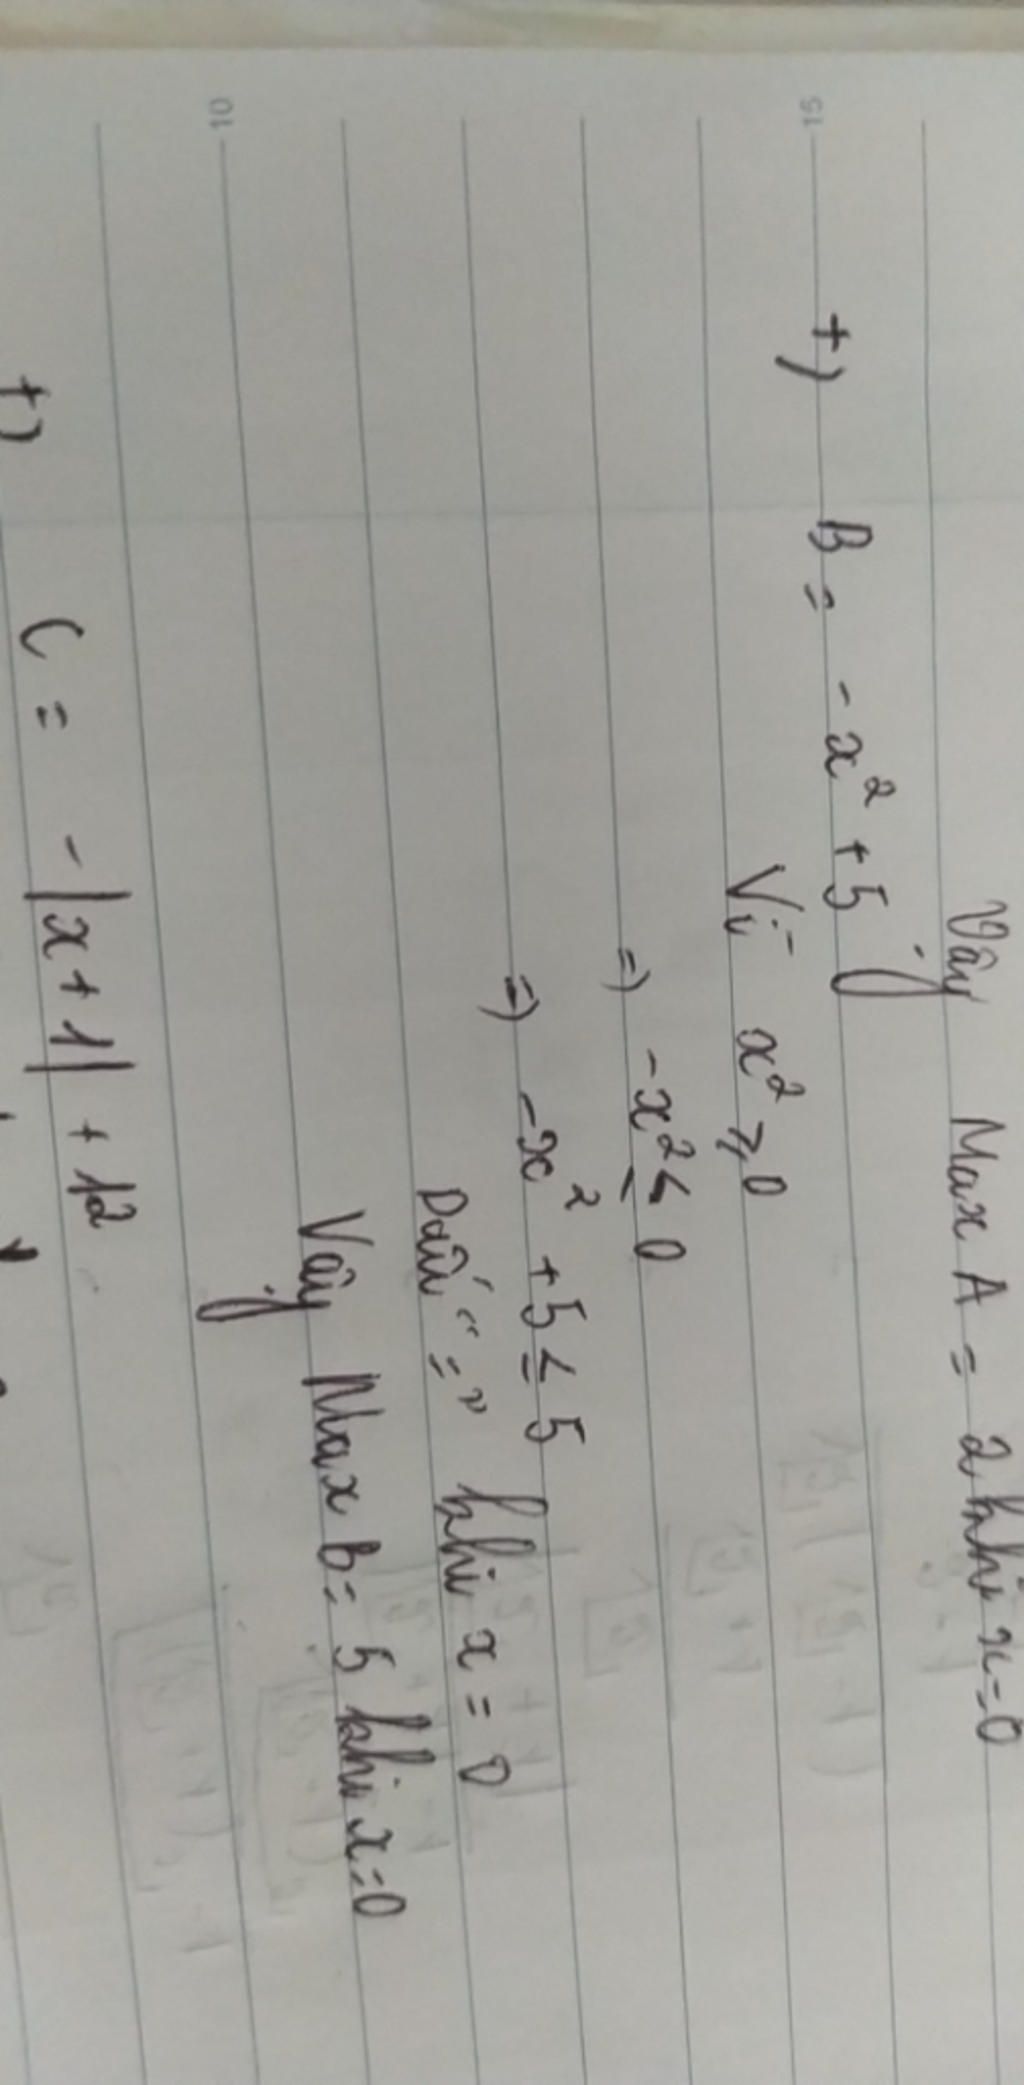 Vậy Max A = 2 khi x=0
15
+) B = -x² + 5
Vì x² ⩾ 0
=) -x² ≤ 0
=) -x² + 5 ≤ 5
Dấu "=" khi x = 0
Vậy Max B = 5 khi x=0
10
+) C = -|x+1| + 12